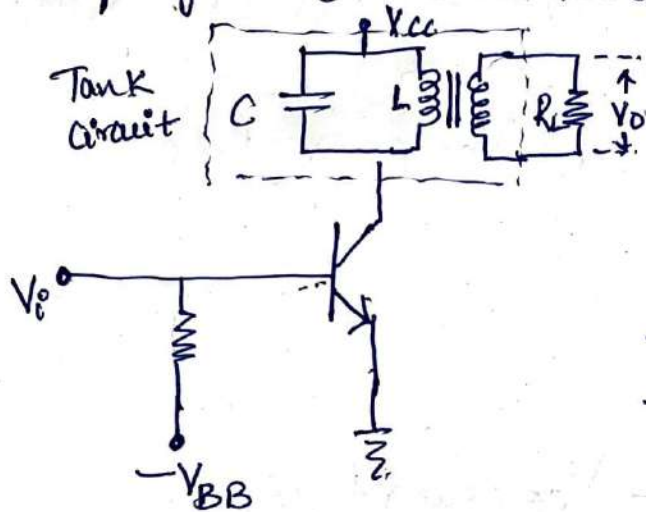 Vcc
Tank
Circuit
C
L
RL
Vo
Vi
-VBB